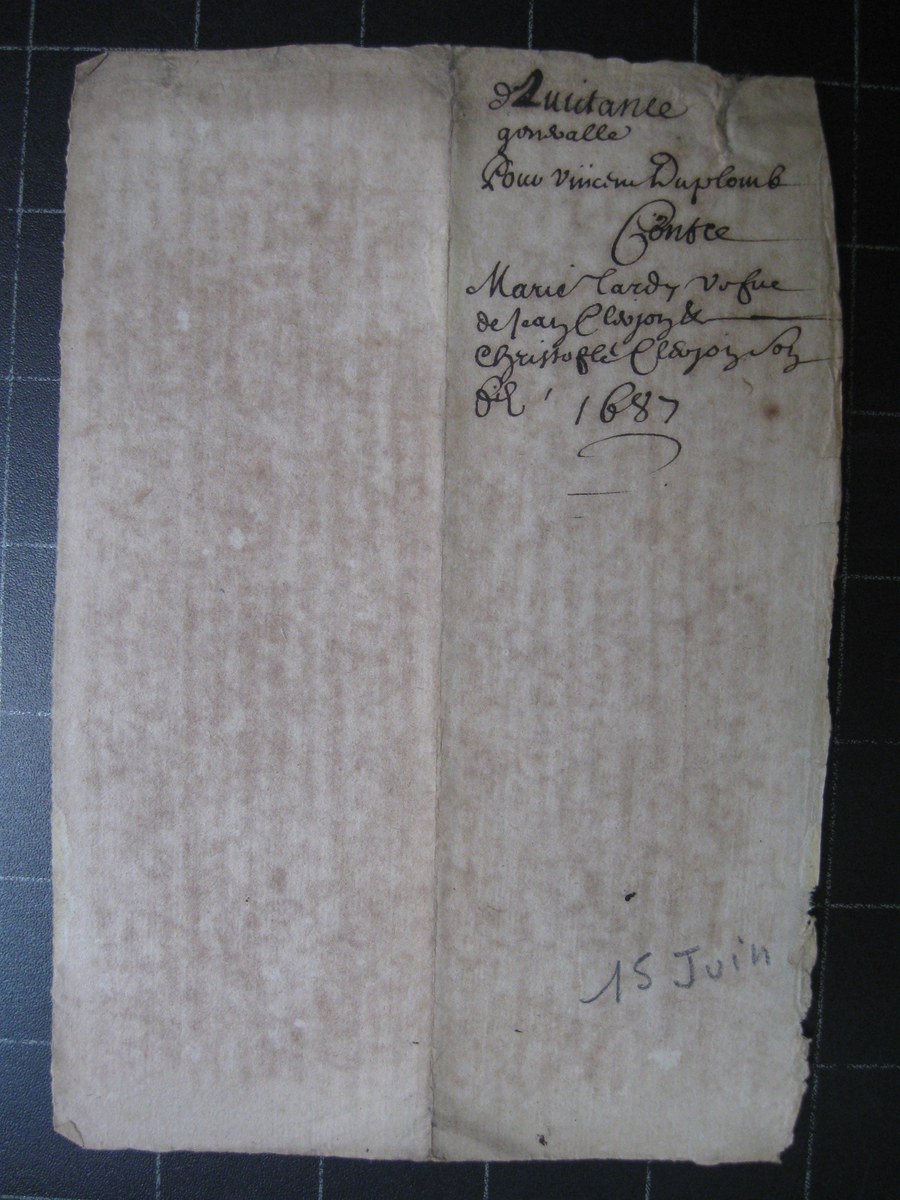 Quictance
gen~alle
Pour Vincent Duplomb
Contre
Marie Tardy vefve
de Jean Clavjoy &
Christofle Clavjoy son
fil 1687
15 Juin